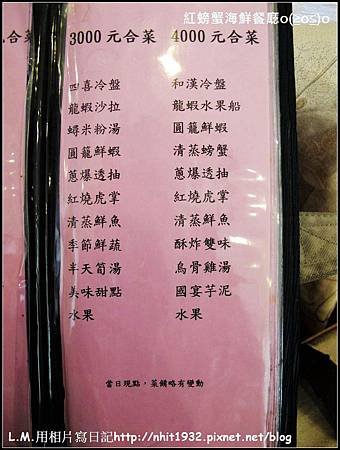 紅螃蟹海鮮餐廳o(≧o≦)o
元合菜
3000 元合菜
四喜冷盤
龍蝦沙拉
蟳米粉湯
圓籠鮮蝦
蔥爆透抽
紅燒虎掌
清蒸鮮魚
季節鮮蔬
半天筍湯
美味甜點
水果
4000 元合菜
和漢冷盤
龍蝦水果船
圓籠鮮蝦
清蒸螃蟹
蔥爆透抽
紅燒虎掌
清蒸鮮魚
酥炸雙味
烏骨雞湯
國宴芋泥
水果
當日現點，菜餚略有變動
L.M.用相片寫日記http://nhit1932.pixnet.net/blog